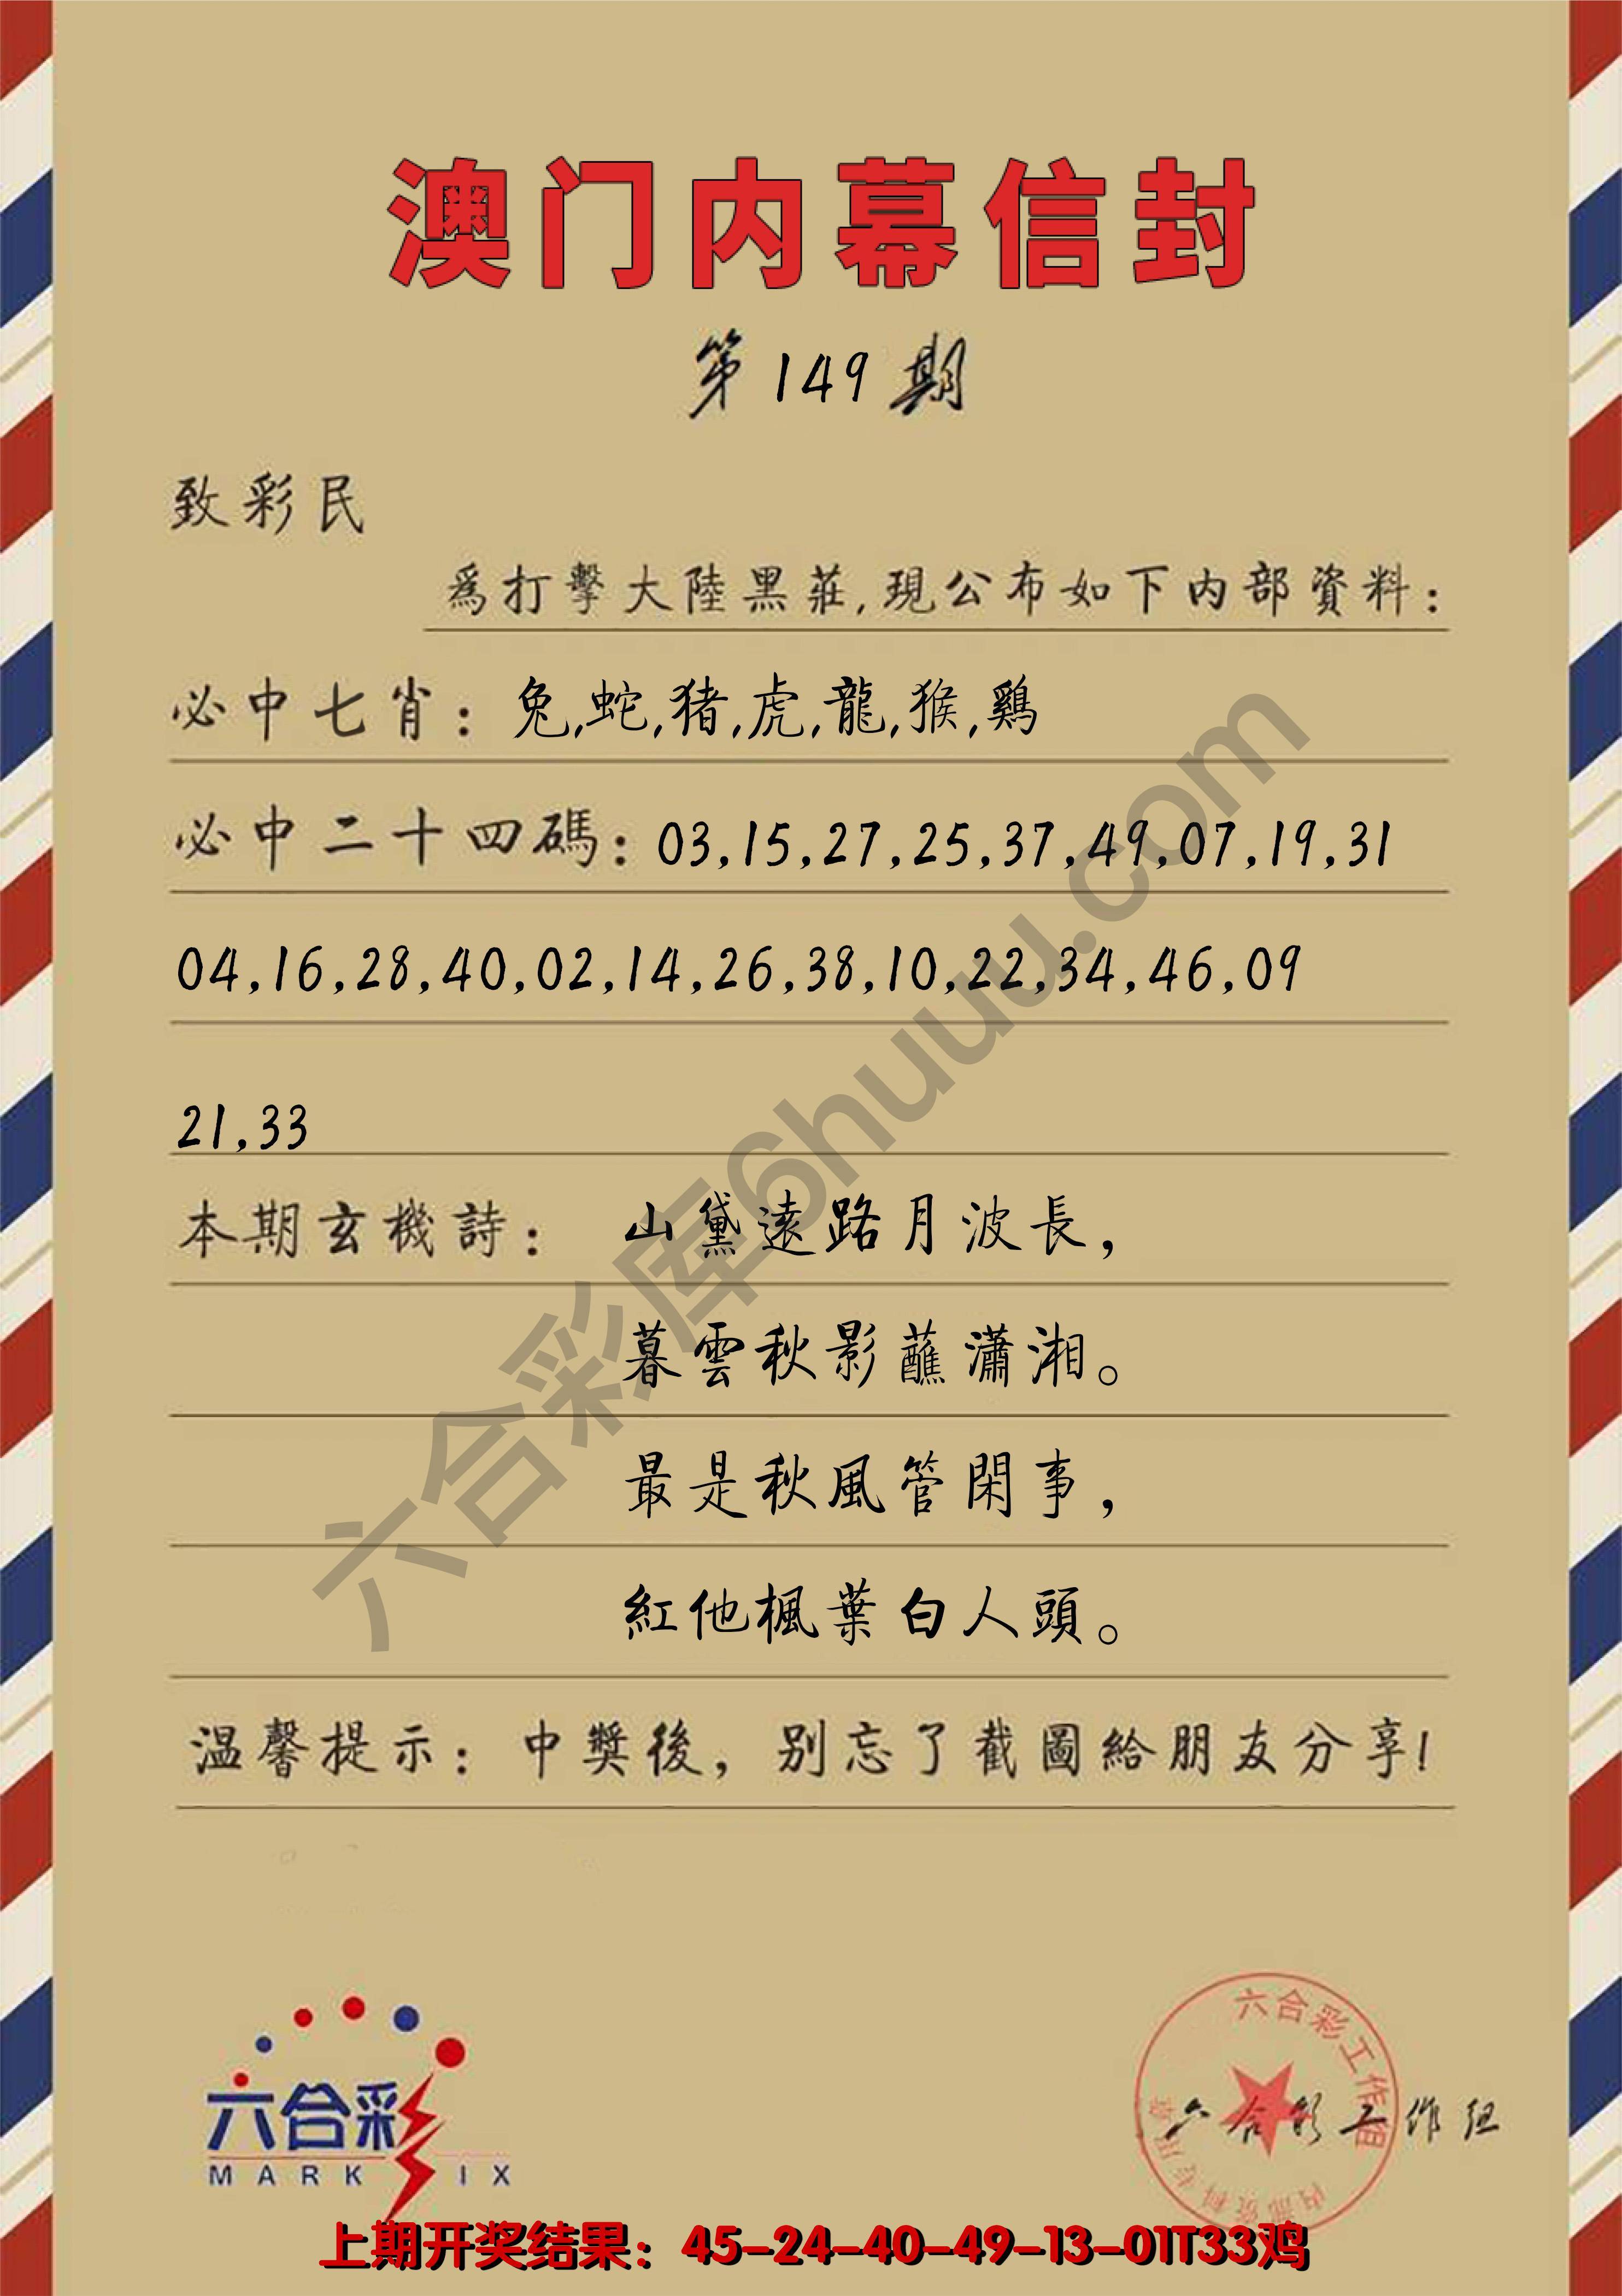 澳门内幕信封
第149期
致彩民
為打擊大陸黑莊,現公布如下内部資料:
必中七肖: 兔,蛇,猪,虎,龍,猴,鷄
必中二十四碼: 03,15,27,25,37,49,07,19,31
04,16,28,40,02,14,26,38,10,22,34,46,09
21,33
本期玄機詩: 山黛遠路月波長,
暮雲秋影蘸瀟湘。
最是秋風管閑事,
紅他楓葉白人頭。
温馨提示: 中獎後, 别忘了截圖給朋友分享!
六合彩库6huuu.com
六合彩
MARK IX
六合彩工作组
内部资料专用章
六合彩工作组
上期开奖结果: 45-24-40-49-13-01T33鸡